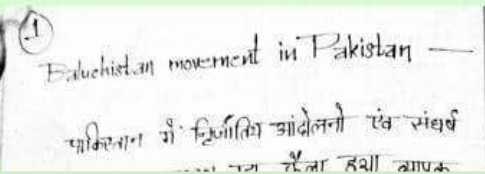 1
Baluchistan movement in Pakistan —
पाकिस्तान में आंदोलनो एंव संघर्ष
फैला हुआ व्यापक